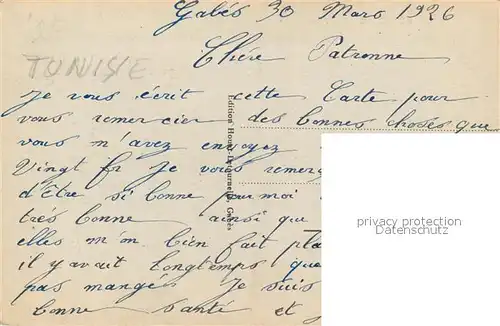 Gabès 30 Mars 1926
Chère Patronne
TUNISIE
Je vous écrit cette Carte pour
vous remercier des bonnes choses que
vous m'avez envoyez
Vingt fr Je vous remerç
d'être si bonne pour moi
très bonne ainsi que
elles m'on bien fait pla
il y avait longtemps que
pas mangé. Je suis
bonne santé et
Edition Gabès
privacy protection
Datenschutz